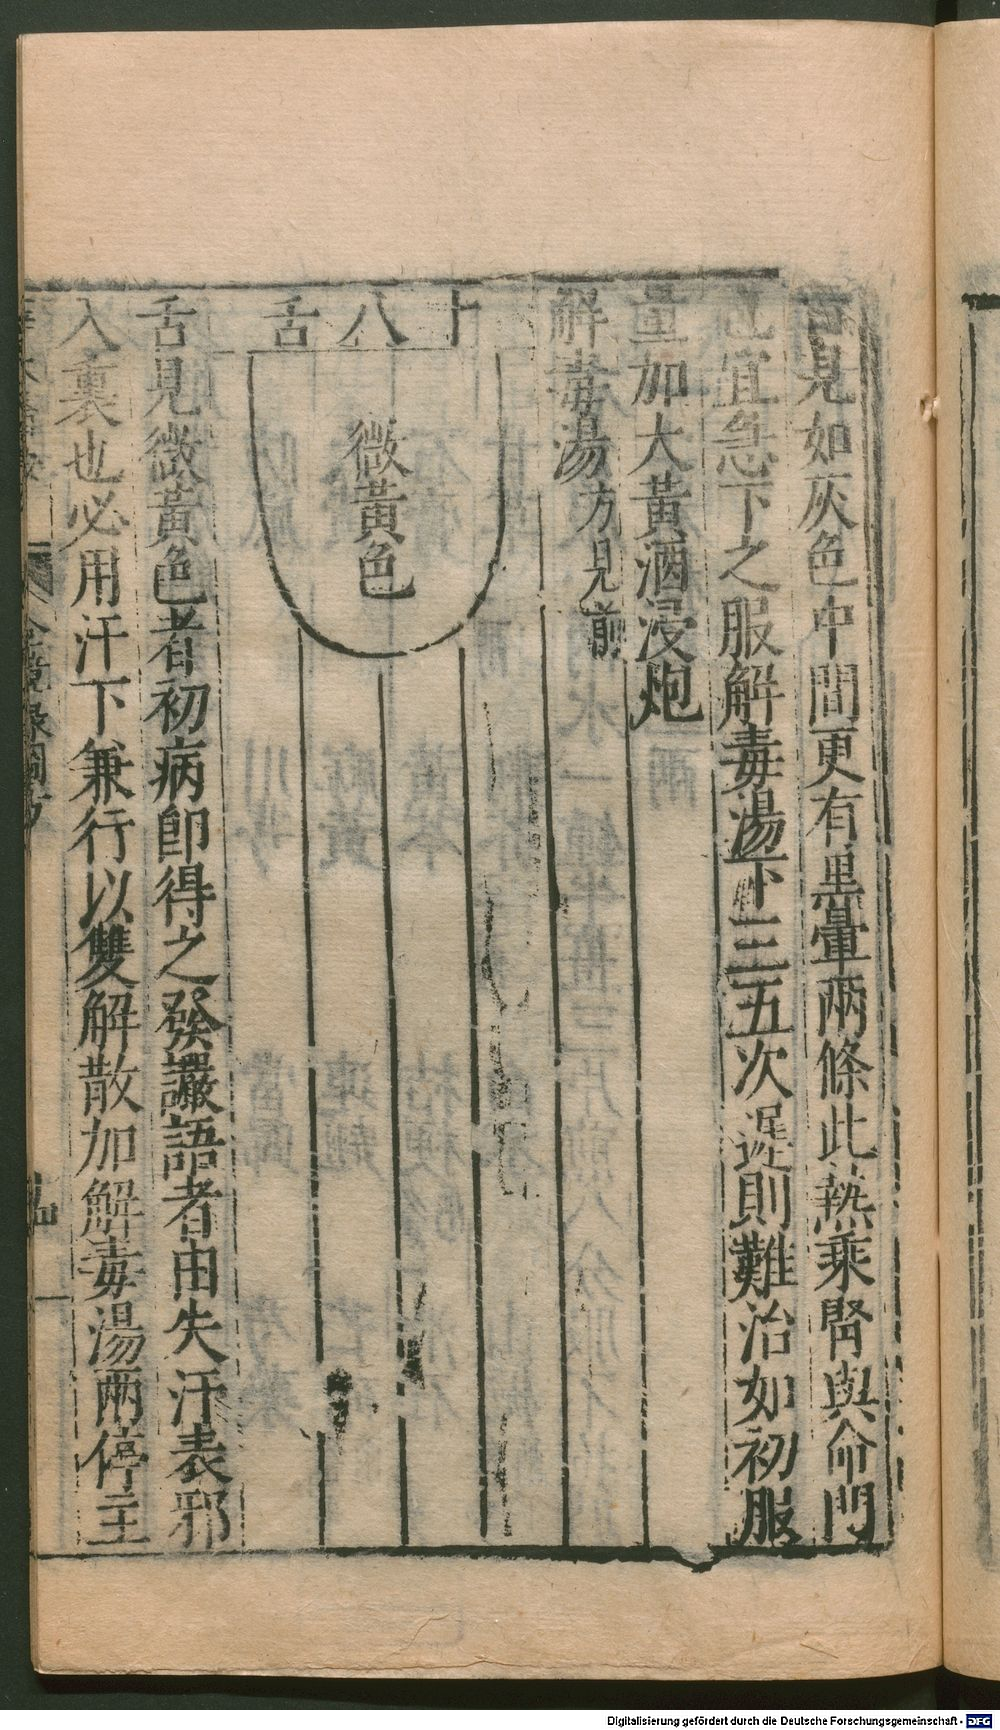 舌見如灰色中間更有黑暈兩條此熱乘腎與命門
也宜急下之服解毒湯下三五次遲則難治如初服
量加大黃酒浸炮
解毒湯方見前
十八舌
微黃色
舌見微黃色者初病即得之發讝語者由失汗表邪
入裏也必用汗下兼行以雙解散加解毒湯兩停主
Digitalisierung gefördert durch die Deutsche Forschungsgemeinschaft - DFG